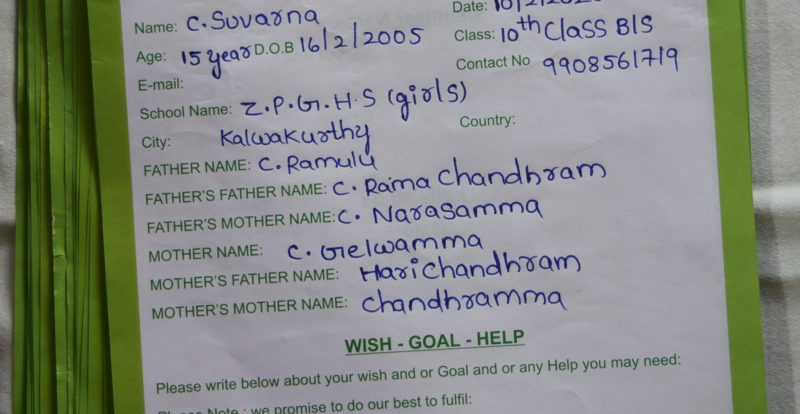 Name: C. Suvarna
Date: 10/2/202
Age: 15 year D.O.B 16/2/2005
Class: 10th Class B/S
E-mail:
Contact No 9908561719
School Name: Z.P.G.H.S (girls)
City: Kalwakurthy
Country:
FATHER NAME: C. Ramulu
FATHER'S FATHER NAME: C. Rama Chandhram
FATHER'S MOTHER NAME: C. Narasamma
MOTHER NAME: C. Gelwamma
MOTHER'S FATHER NAME: Harichandhram
MOTHER'S MOTHER NAME: Chandhramma
WISH - GOAL - HELP
Please write below about your wish and or Goal and or any Help you may need:
Note : we promise to do our best to fulfil: